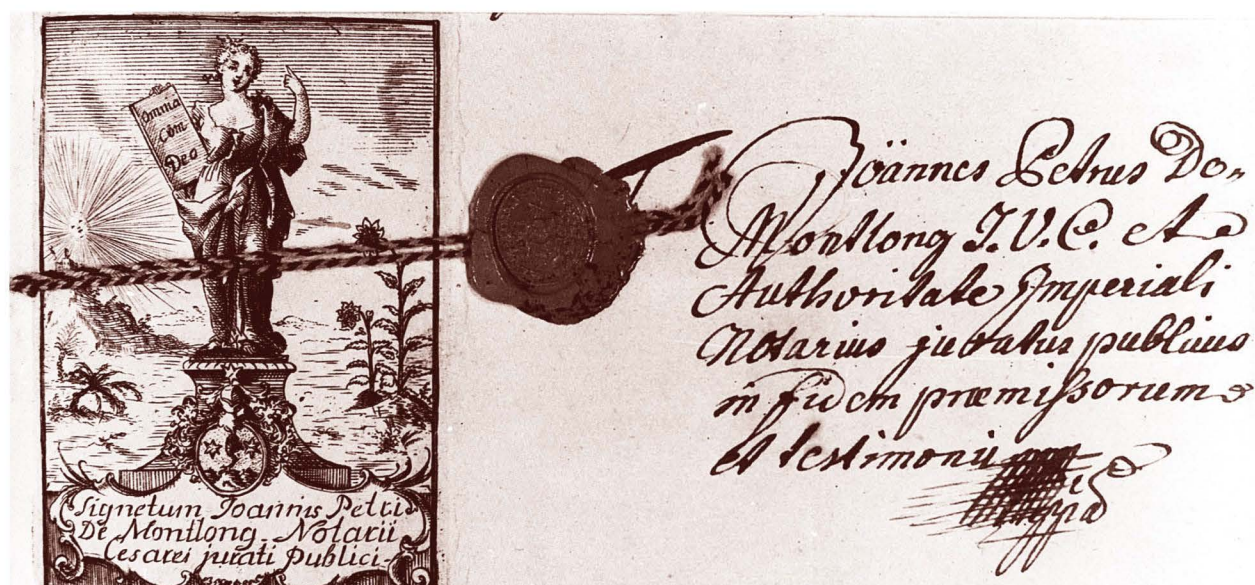 Omnia
Cûm
Deo
Signetum Joannis Petri
De Montlong Notarii
Cesarei jurati Publici
Joännes Petrus De„
Montlong J.V.C. et
Authoritate Jmperiali
Notarius juratus publicus
in fidem præmißorum
et testimonii